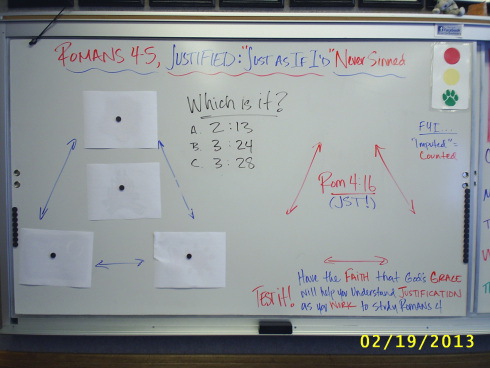 ROMANS 4-5, JUSTIFIED: "JUST AS IF I'D" NEVER SINNED
Which is it?
A. 2:13
B. 3:24
C. 3:28
FYI...
"Imputed" =
Counted
Rom 4:16
(JST!)
TEST it!
Have the FAITH that God's GRACE
will help you understand JUSTIFICATION
as you WORK to study ROMANS 4
02/19/2013